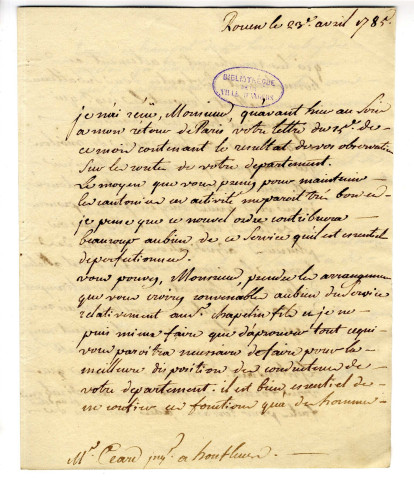 Rouen le 23. avril 1785.
BIBLIOTHEQUE
DE LA
VILLE D'
je n'ai reçu, Monsieur, qu'avant hier au Soir
a mon retour de Paris, votre lettre du 15. de
ce mois contenant le resultat de vos observations
Sur les routes de votre departement.
Le moyen que vous prenez pour maintenir
les cantoniers en activité me paroit tres bon et
je pense que ce nouvel ordre contribuera
beaucoup au bien de ce Service qu'il est essentiel
de perfectionner.
vous pouvez, Monsieur, prendre les arrangemens
que vous croirez convenable au bien du Service
relativement au S. chapelin fils et je ne
puis mieux faire que d'aprouver tout ce qui
vous paroitra necessaire de faire pour la
meilleure disposition des conducteurs de
votre departement: il est bien essentiel de
ne confier ces fonctions qu'a des hommes
M. Ceard ing. a honfleur.